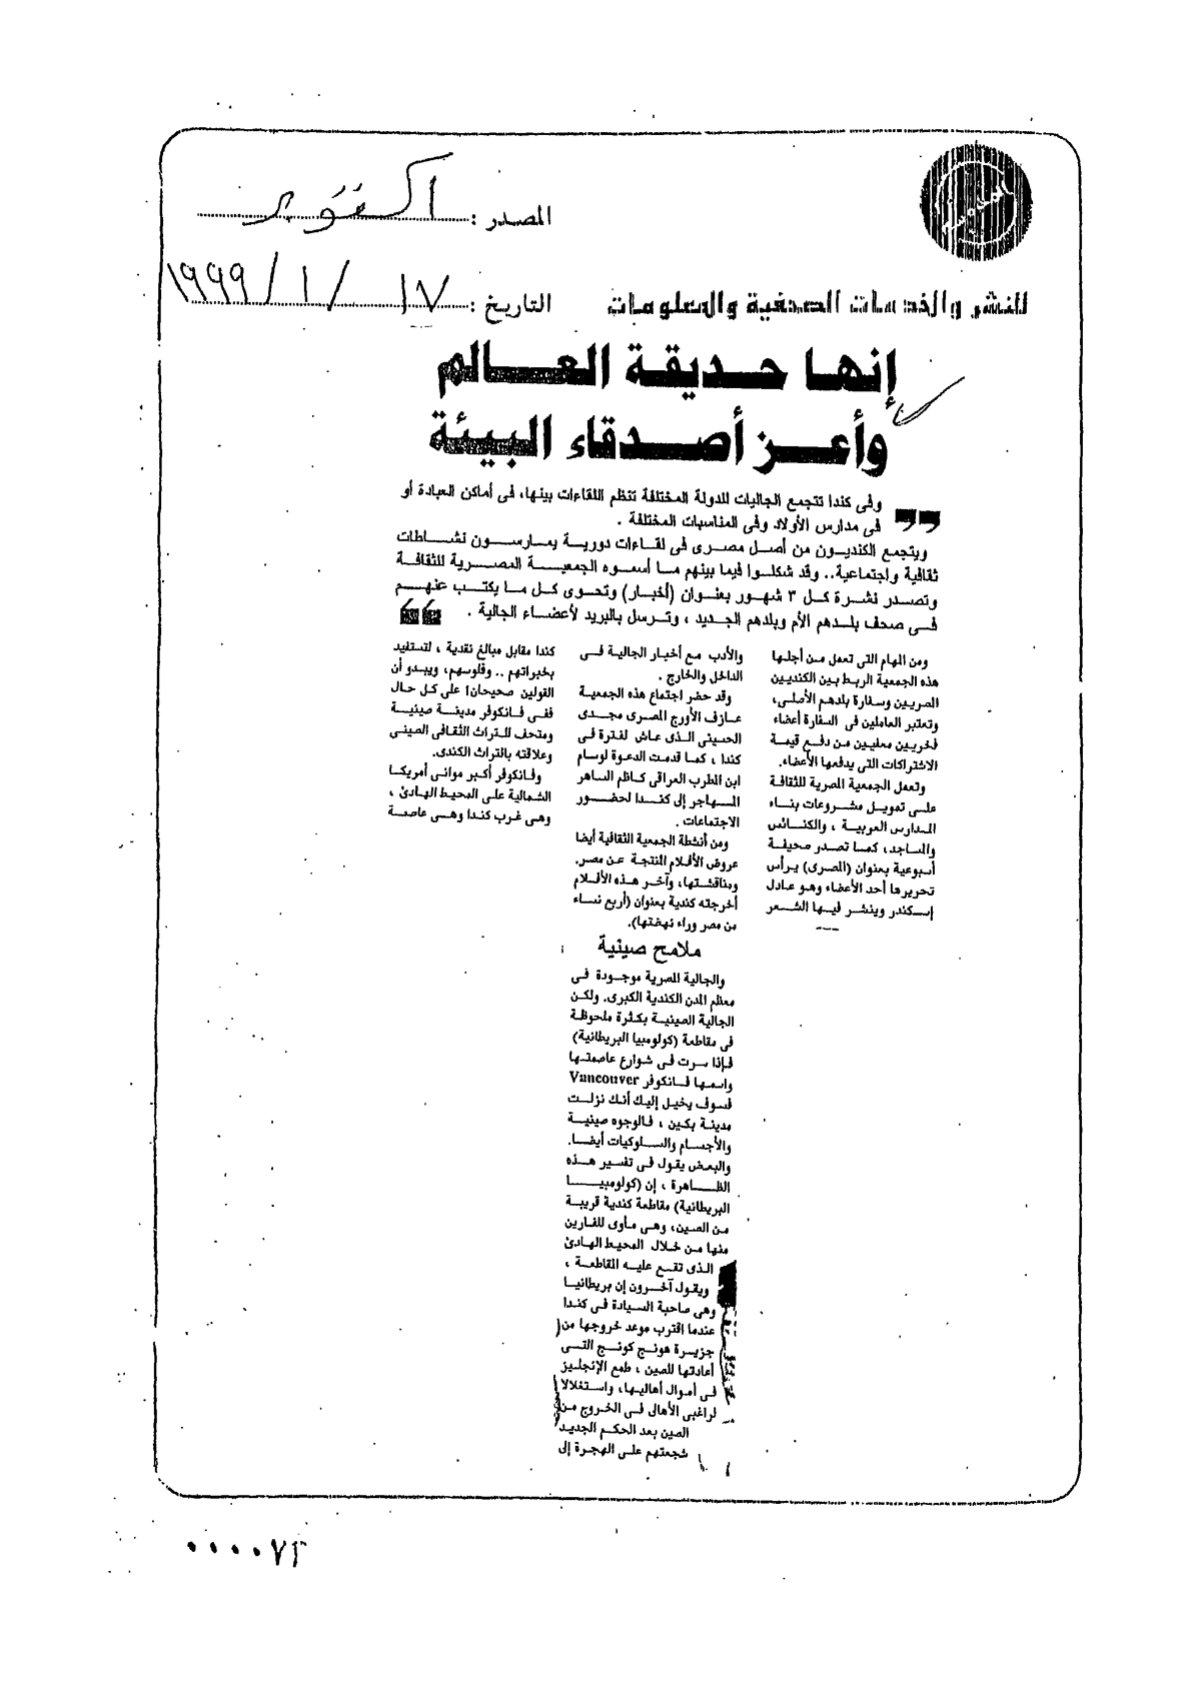 المصدر : اكتوبر
التاريخ : ١٧ / ١ / ١٩٩٩
للنشر والخدمات الصحفية والمعلومات
إنها حديقة العالم
وأعز أصدقاء البيئة
وفى كندا تتجمع الجاليات للدولة المختلفة تنظم اللقاءات بينها، فى أماكن العبادة أو
فى مدارس الأولاد وفى المناسبات المختلفة .
ويتجمع الكنديون من أصل مصرى فى لقاءات دورية يمارسون نشاطات
ثقافية واجتماعية.. وقد شكلوا فيما بينهم ما أسموه الجمعية المصرية للثقافة
وتصدر نشرة كل ٣ شهور بعنوان (أخبار) وتحوى كل ما يكتب عنهم
فى صحف بلدهم الأم وبلدهم الجديد ، وترسل بالبريد لأعضاء الجالية .
ومن المهام التى تعمل من أجلها
هذه الجمعية الربط بين الكنديين
المصريين وسفارة بلدهم الأصلى،
وتعتبر العاملين فى السفارة أعضاء
فخريين معفيين من دفع قيمة
الاشتراكات التى يدفعها الأعضاء.
وتعمل الجمعية المصرية للثقافة
على تمويل مشروعات بناء
المدارس العربية ، والكنائس
والمساجد، كما تصدر صحيفة
أسبوعية بعنوان (المصرى) يرأس
تحريرها أحد الأعضاء وهو عادل
إسكندر وينشر فيها الشعر
والأدب مع أخبار الجالية فى
الداخل والخارج .
وقد حضر اجتماع هذه الجمعية
عازف الأورج المصرى مجدى
الحسينى الذى عاش لفترة فى
كندا ، كما قدمت الدعوة لوسام
ابن المطرب العراقى كاظم الساهر
المهاجر إلى كندا لحضور
الاجتماعات .
ومن أنشطة الجمعية الثقافية أيضا
عروض الأفلام المنتجة عن مصر.
ومناقشتها، وآخر هذه الأفلام
أخرجته كندية بعنوان (أربع نساء
من مصر وراء نهضتها).
ملامح صينية
والجالية المصرية موجودة فى
معظم المدن الكندية الكبرى. ولكن
الجالية الصينية بكثرة ملحوظة
فى مقاطعة (كولومبيا البريطانية)
فإذا سرت فى شوارع عاصمتها
واسمها فانكوفر Vancouver
فسوف يخيل إليك أنك نزلت
مدينة بكين ، فالوجوه صينية
والأجسام والسلوكيات أيضا.
والبعض يقول فى تفسير هذه
الظاهرة ، إن (كولومبيا
البريطانية) مقاطعة كندية قريبة
من الصين، وهى مأوى للفارين
منها من خلال المحيط الهادئ
الذى تقع عليه المقاطعة ،
ويقول آخرون إن بريطانيا
وهى صاحبة السيادة فى كندا
عندما اقترب موعد خروجها من
جزيرة هونج كونج التى
أعادتها للصين ، طمع الإنجليز
فى أموال أهاليها، واستغلالا
لراغبى الأهالى فى الخروج من
الصين بعد الحكم الجديد
شجعتهم على الهجرة إلى
كندا مقابل مبالغ نقدية ، لتستفيد
بخبراتهم .. وفلوسهم، ويبدو أن
القولين صحيحان! على كل حال
ففى فانكوفر مدينة صينية
ومتحف للتراث الثقافى الصينى
وعلاقته بالتراث الكندى.
وفانكوفر أكبر موانى أمريكا
الشمالية على المحيط الهادئ ،
وهى غرب كندا وهى عاصمة